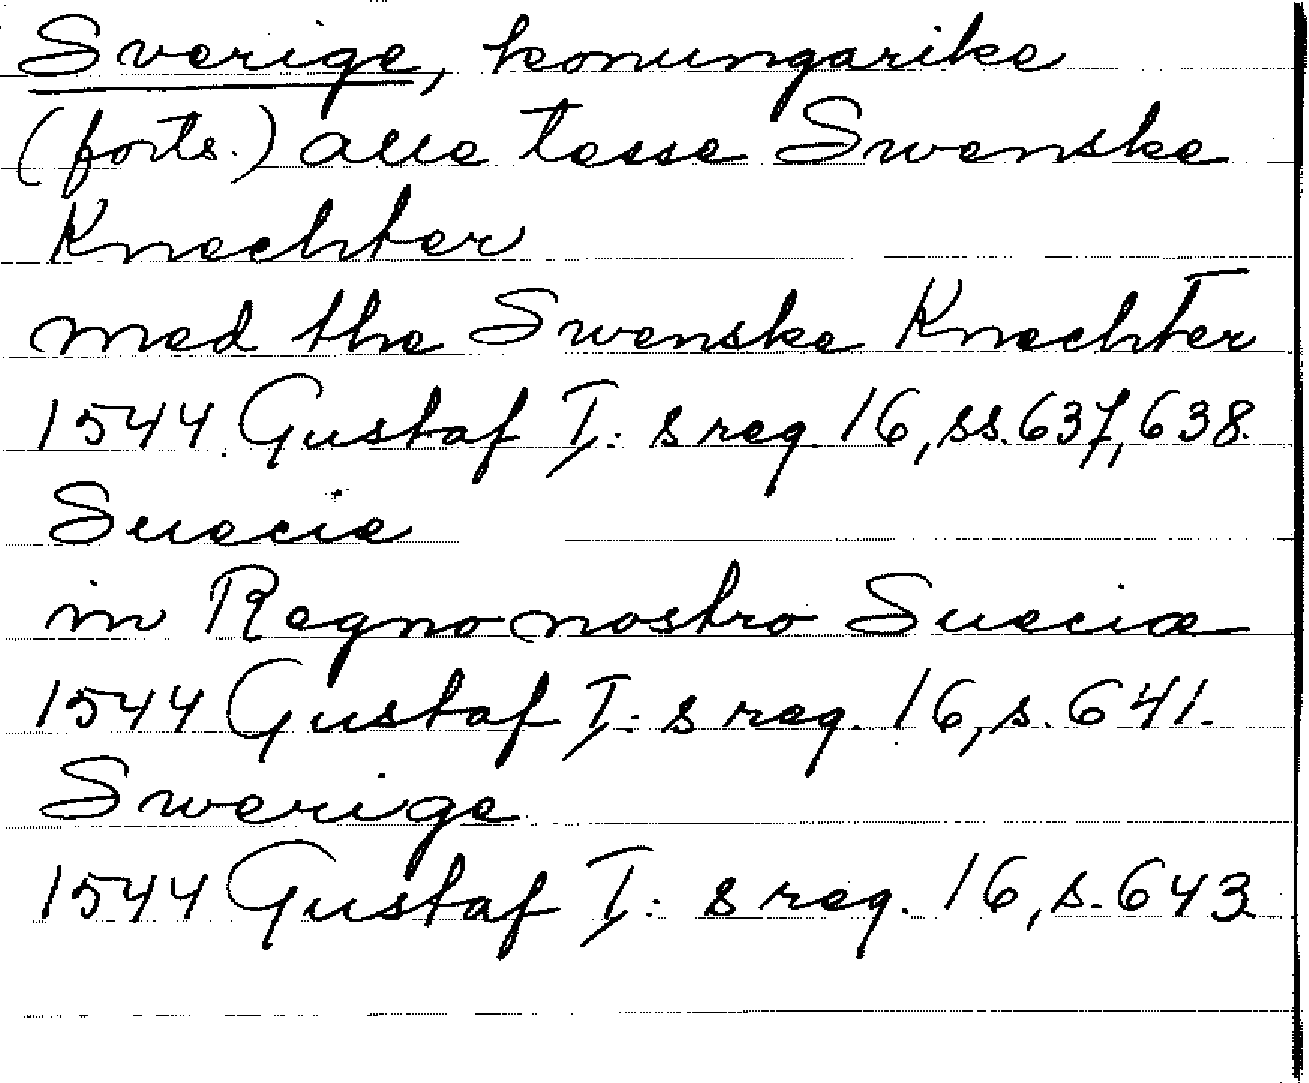 Sverige, konungarike
(forts.) alle tesse Swenske
Knechter
med the Swenske Knechter
1544 Gustaf I:s reg. 16, ss. 637, 638.
Suecie
in Regno nostro Sueciæ
1544 Gustaf I:s reg. 16, s. 641.
Swerige
1544 Gustaf I:s reg. 16, s. 643.